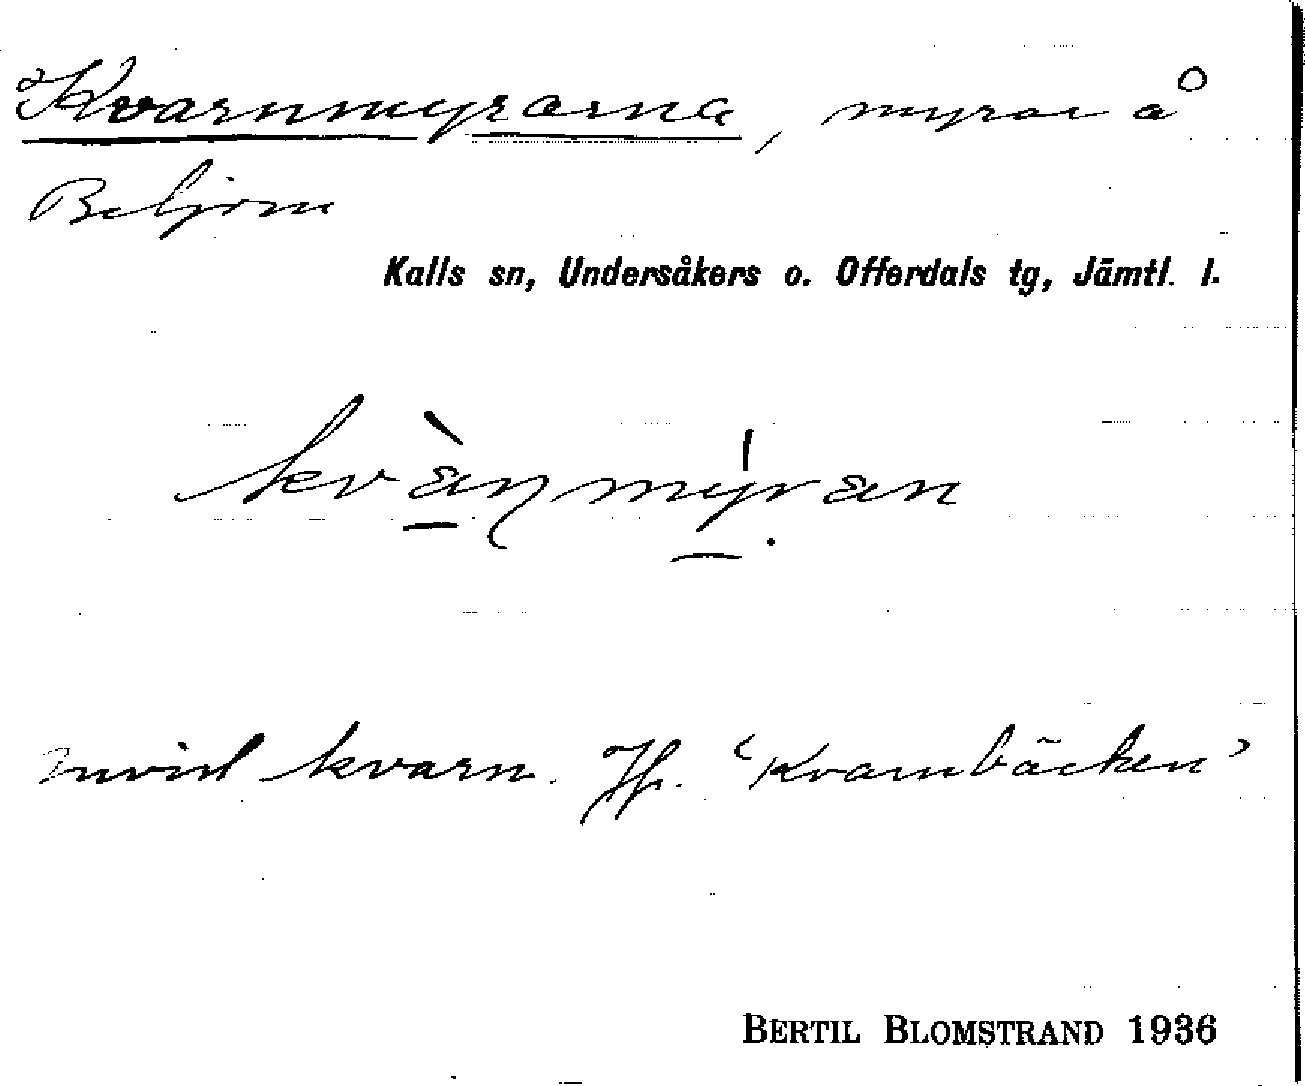 Kvarnmyrarna, myrar å
Beljom
Kalls sn, Undersåkers o. Offerdals tg, Jämtl. l.
Invid kvarn. Jfr. 'Kvarnbäcken'
BERTIL BLOMSTRAND 1936